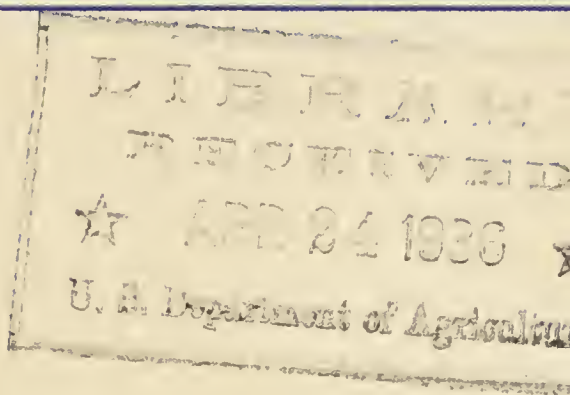 LIBRARY
RECEIVED
☆ APR 24 1936 ☆
U. S. Department of Agriculture